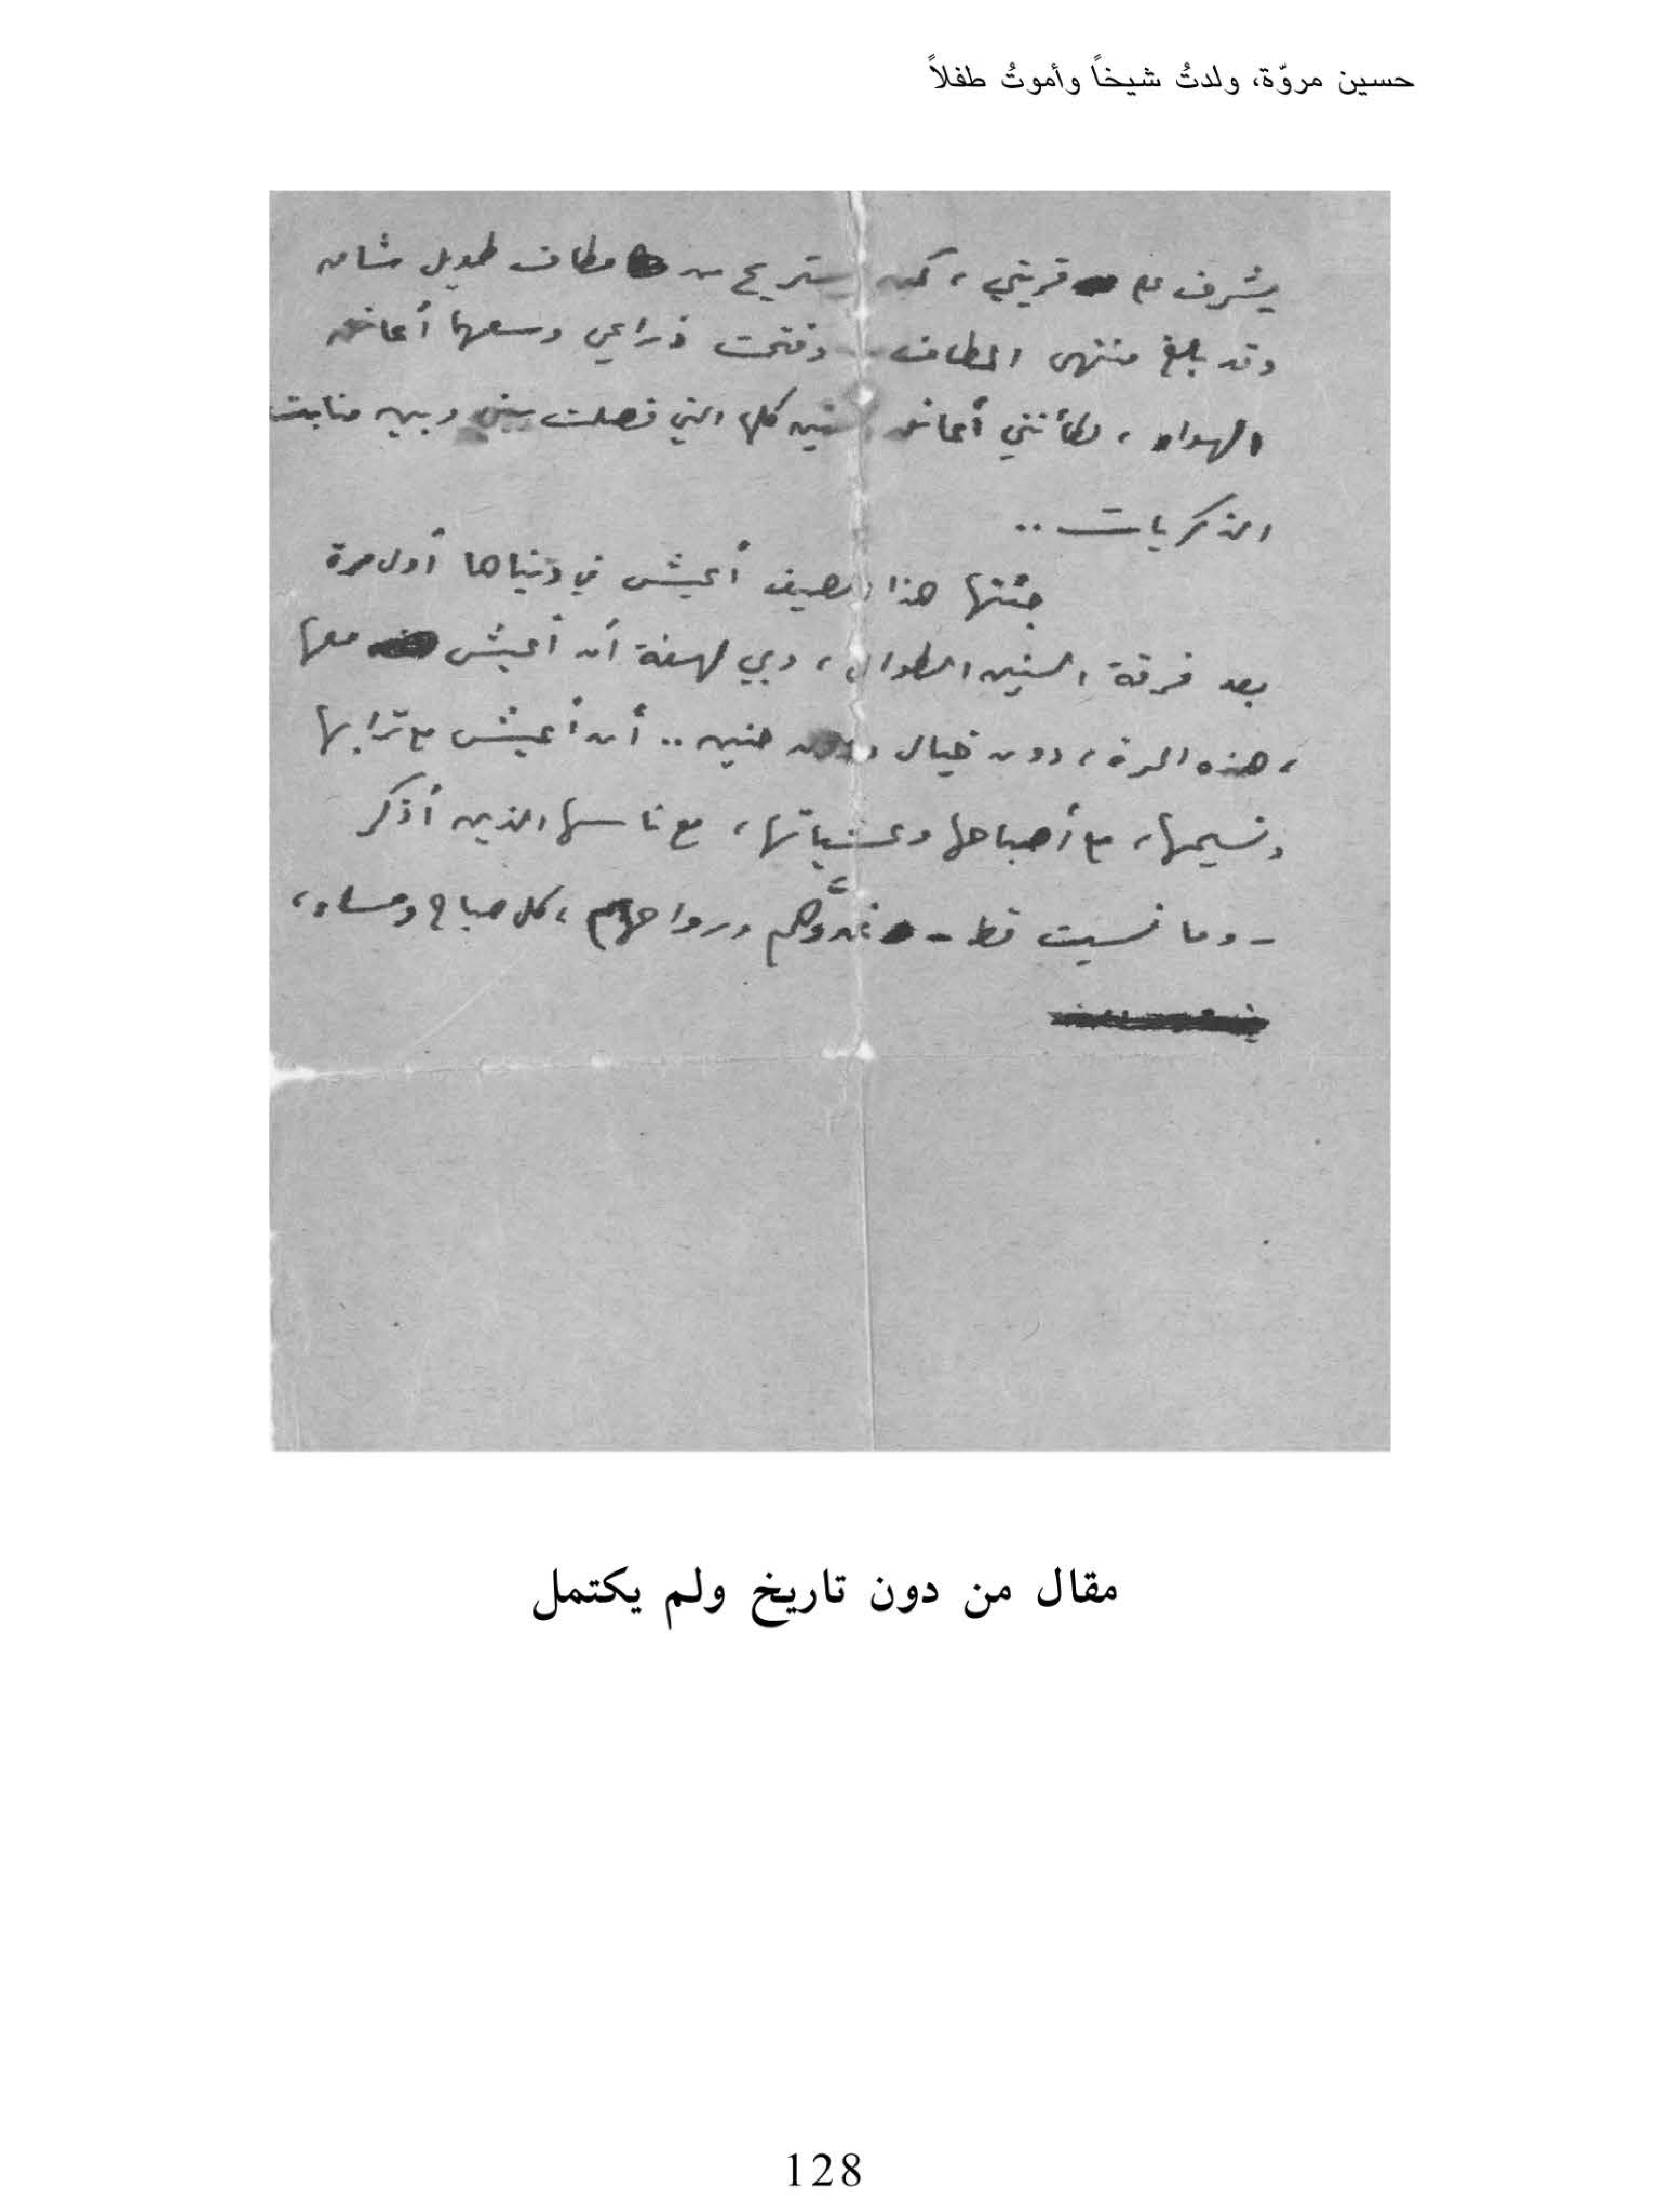 حسين مروّة، ولدتُ شيخاً وأموتُ طفلاً
يشرف على قريتي، كمن يستريح من مطاف طويل شاق
وقد بلغ منتهى المطاف.. وفتحت ذراعي وسعهما أعانق
الهواء، لكأنني أعانق السنين كلها التي فصلت بيني وبين منابت
الذكريات..
جئتها هذا الصيف أعيش في دنياها أول مرة
بعد فرقة السنين الطوال، وبي لهفة أن أعيش معها
، هذه المرة، دون خيال ودون حنين.. أن أعيش مع ترابها
ونسيمها، مع أصباحها وعشياتها، مع ناسها الذين أذكر
- وما نسيت قط - غدوَّهم ورواحهم، كل صباح ومساء،
مقال من دون تاريخ ولم يكتمل
128